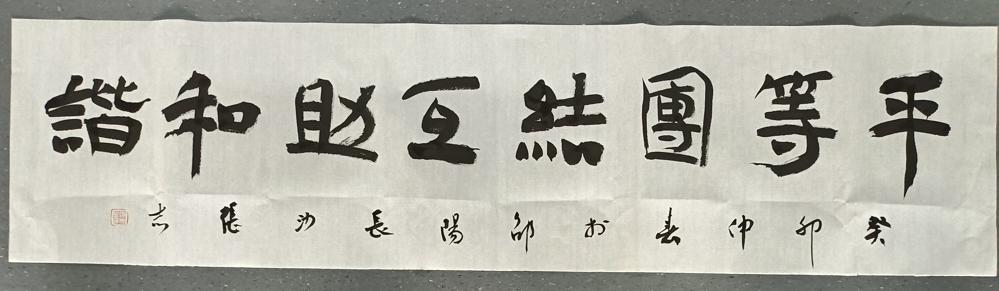 平等團結互助和諧
癸卯仲春於邵陽長沙張志